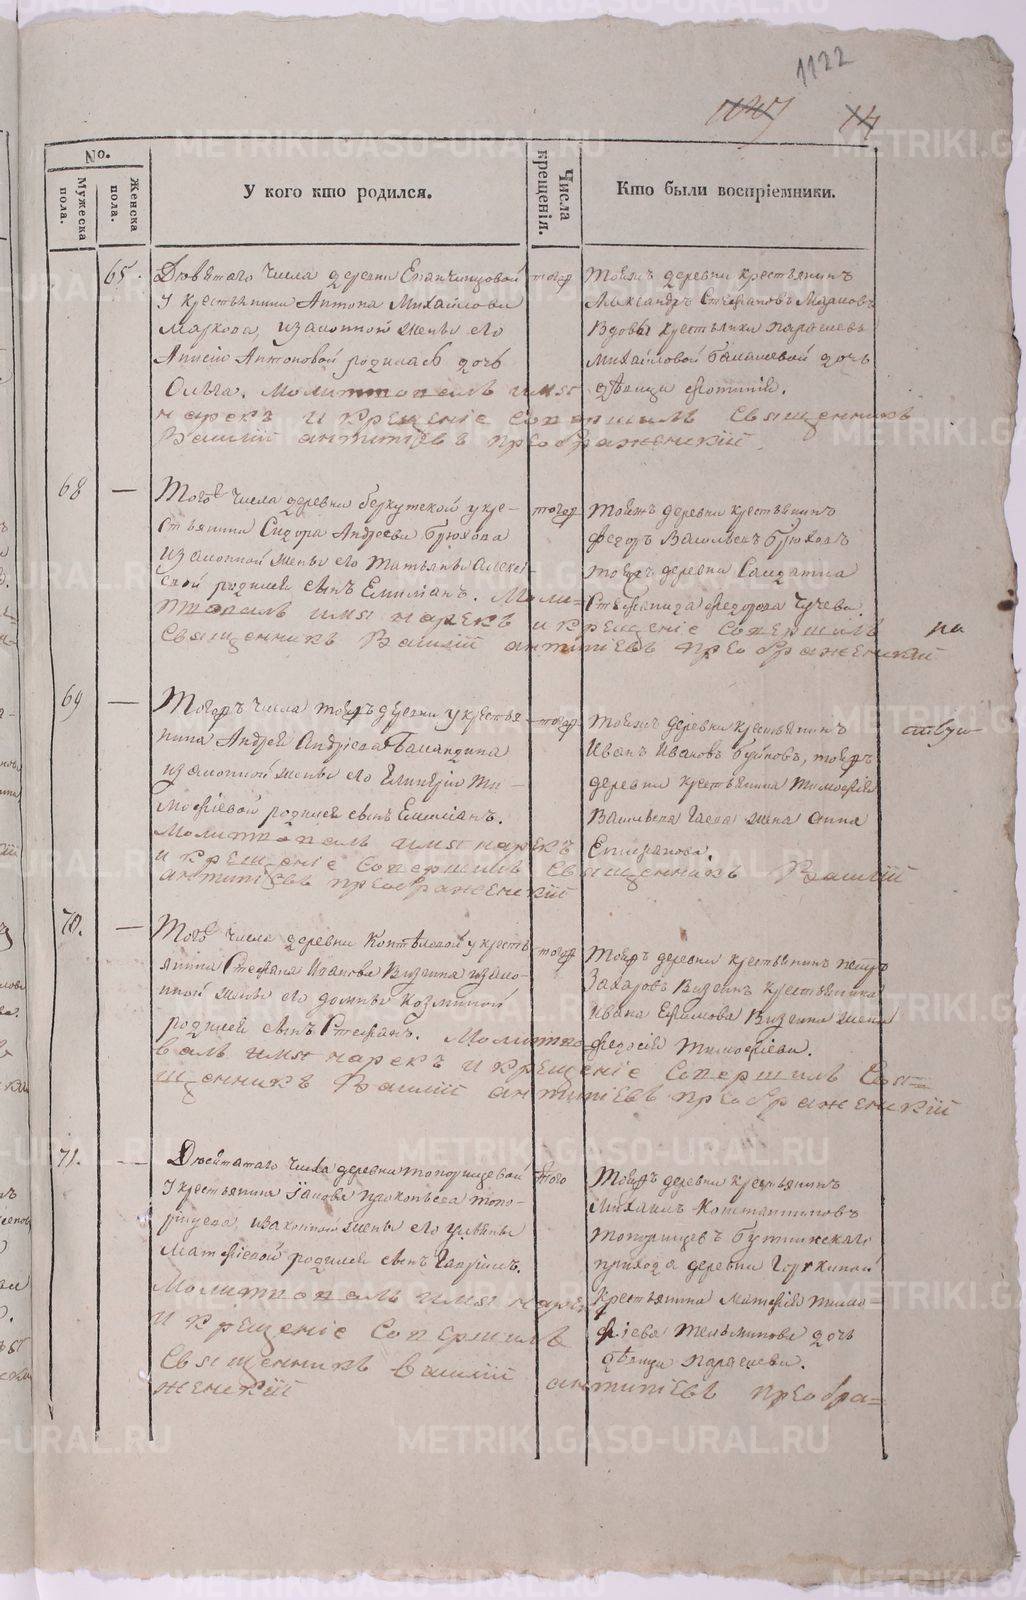 1122
14
No.
Мужеска пола.
Женска пола.
У кого кто родился.
Числа крещенія.
Кто были воспріемники.
65.
Девятаго числа деревни Епанчинцовой
У крестьянина Антона Михайлова
Маркова, изаконной жены его
Анисіи Антоновой родилась дочь
Ольга. Молитвовалъ имя
нарекъ и крещеніе совершилъ священникъ
Василій Антипіевъ Преображенскій
того
Тойже деревни крестьянинъ
Александръ Стефановъ Марковъ
Вдовы крестьянки
Михайловой дочь
девица Фотинія.
68
—
Того числа деревни беркутской у кре-
стьянина Сидора Андреева Брюхова
изаконной жены его Татьяны Алексе-
евой родился сынъ Емиліанъ. Моли-
твовалъ имя нарекъ и крещеніе совершилъ
Священникъ Василій Антипіевъ Преображенскій
Тойже деревни крестьянинъ
Федоръ Васильевъ Брюховъ
тойже деревни
Стефанида Федорова
69
—
Тогожъ числа тойжъ деревни у крестья-
нина Андрея Андреева Баландина
изаконной жены его Гликеріи Ти-
мофеевой родился сынъ Емиліанъ.
Молитвовалъ имя нарекъ
и крещеніе совершилъ священникъ Василій
Антипіевъ Преображенскій
Тойже деревни крестьянинъ
Иванъ Ивановъ тойжъ
деревни крестьянина Тимофея
Васильева жена Анна
Епифанова.
70.
—
Того числа деревни Коптеловой у кресть-
янина Стефана Иванова Визгина изако-
нной жены его Домны Козминой
родился сынъ Стефанъ. Молитво-
валъ имя нарекъ и крещеніе совершилъ Свя-
щенникъ Василій Антипіевъ Преображенскій
Тойжъ деревни крестьянинъ Петръ
Захаровъ Визгинъ крестьянина
Ивана Ефимова Визгина жена
Федосія Тимофеева.
71.
—
Девятаго числа деревни Топорищевой
У крестьянина Іакова Прокопьева Топо-
рищева, изаконной жены его Ульяны
Матфіевой родился сынъ Гавріилъ.
Молитвовалъ имя нарекъ
и крещеніе совершилъ
Священникъ Василій Антипіевъ Преобра-
женскій
того
Тойжъ деревни крестьянинъ
Михаилъ Константиновъ
Топорищевъ Буткинскаго
прихода деревни Горкиной
крестьянина Матфея Тимо-
феева дочь
девица
METRIKI.GASO-URAL.RU